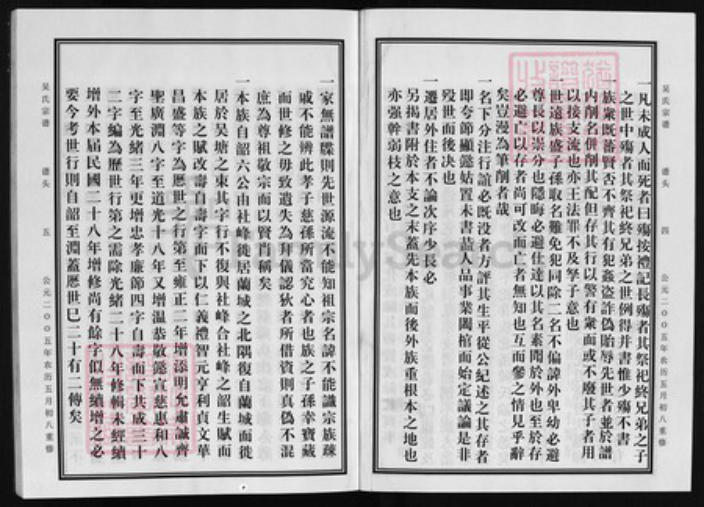 吴氏宗谱 谱头 四 公元二00五年农历五月初八重修
一凡未成人而死者曰殇按禮記長殇者其祭祀終兄弟之子
之世中殇者其祭祀終兄弟之世例得并書惟少殇不書
一族衆既蕃賢否不齊其有犯姦盗詐偽貽辱先世者並於譜
内削名併削其配但存其行以警有衆而或不廢其子者用
以接支流也亦王法罪不及孥子意也
一世遠族盛子孫取名難免犯同除二名不偏諱外卑幼必避
尊長以崇分也隱晦必避仕達以其名素聞於外也至於存
必避亡以存者尚可改而亡者無知也互而參之情見乎辭
矣豈漫為筆削者哉
一名下分注行誼必既没者方評其生平從公紀述之其存者
即夸節顯懿姑置未書葢人品事業闔棺而始定議論是非
殁世而後决也
一遷居外住者不論次序少長必
另揭書附於本支之末蓋先本族而後外族重根本之地也
亦强幹弱枝之意也
吴氏宗谱 谱头 五 公元二00五年农历五月初八重修
一家無譜牒則先世源流不能知祖宗名諱不能識宗族疎
戚不能辨此孝子慈孫所當究心者也族之子孫幸寶藏
而世修之毋致遺失為拜儀認狄者所借資則真偽不混
庶為尊祖敬宗而以賢肖稱矣
一本族自韶六公由社峰徙居蘭城之北隅復自蘭城而徙
居於吴塘之東其字行不復與社峰合社峰之韶生賦而
本族之賦改壽自壽字而下以仁義禮智元亨利貞文華
昌盛等字為歷世之行第至雍正二年增添明允肅誠齊
聖廣淵八字至道光十八年又增温恭敬懿宣慈惠和八
字至光緒三年更增忠孝廉節四字自壽而下共成三十
二字編為歷世行第之需除光緒二十八年修輯未經續
增外本届民國二十八年增修尚有餘字似無續增之必
要今考世行則自韶至淵蓋歷世巳二十有二傳矣